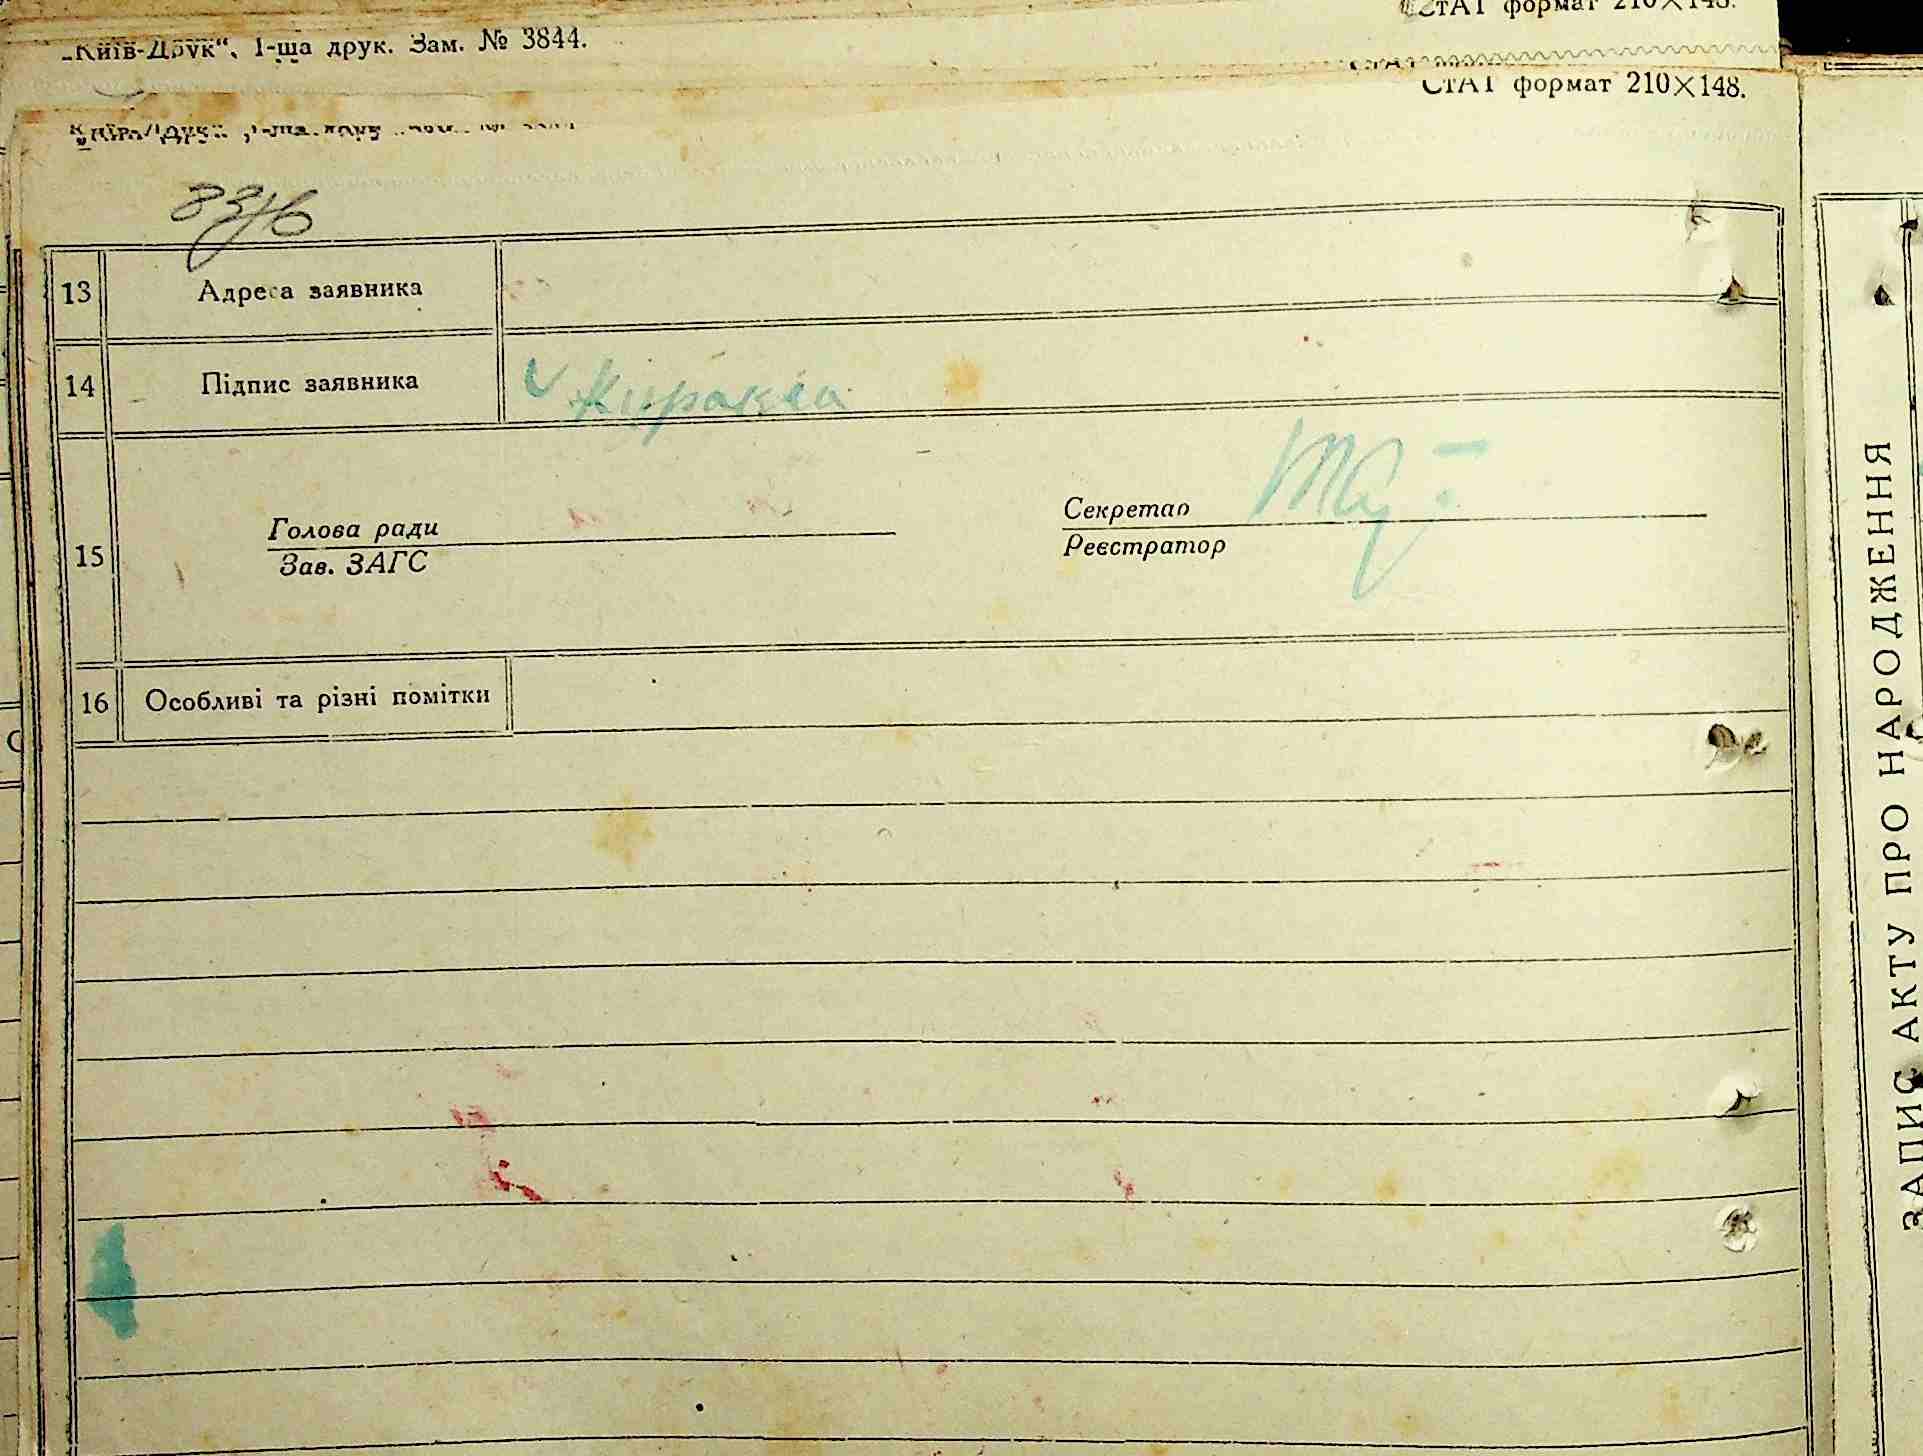 СтАТ формат 210×148.
„Київ-Друк“, 1-ша друк. Зам. № 3844.
СтАТ формат 210×148.
13 Адреса заявника
14 Підпис заявника
15
Голова ради
Зав. ЗАГС
Секретар
Реєстратор
16 Особливі та різні помітки
ЗАПИС АКТУ ПРО НАРОДЖЕННЯ